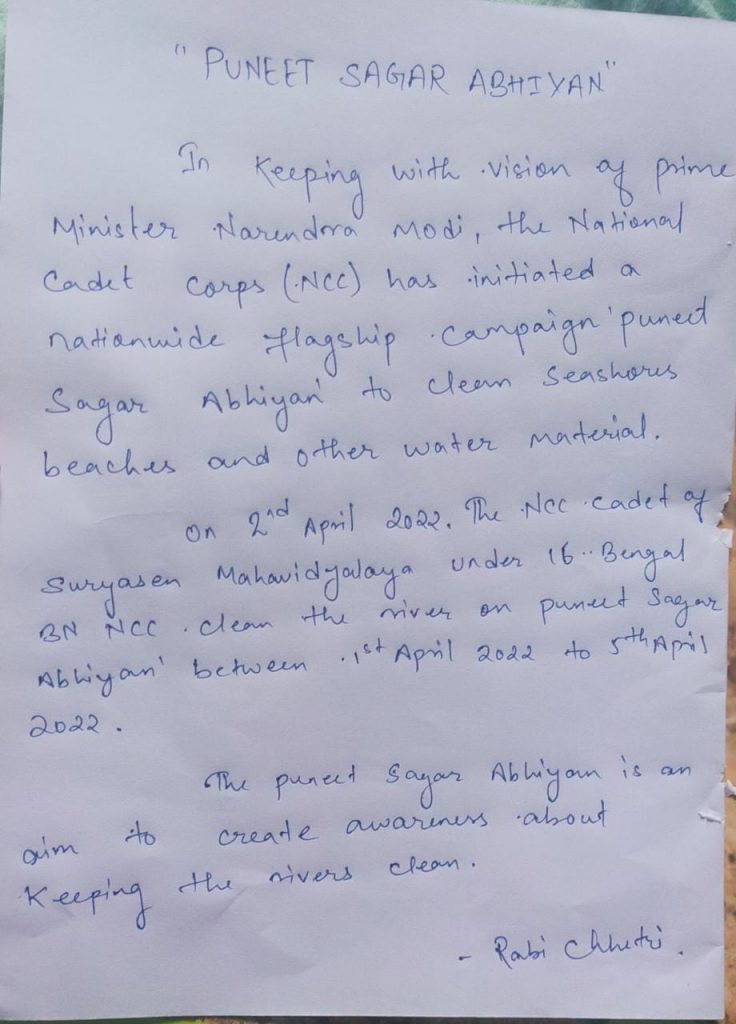 "PUNEET SAGAR ABHIYAN"
In Keeping with vision of prime
Minister Narendra Modi, the National
Cadet Corps (NCC) has initiated a
nationwide flagship campaign 'puneet
Sagar Abhiyan' to clean Seashores
beaches and other water material.
On 2nd April 2022. The NCC cadet of
Suryasen Mahavidyalaya under 16 Bengal
BN NCC clean the river on puneet Sagar
Abhiyan' between 1st April 2022 to 5th April
2022.
The puneet Sagar Abhiyan is an
aim to create awareness about
Keeping the rivers clean.
- Rabi Chhetri.